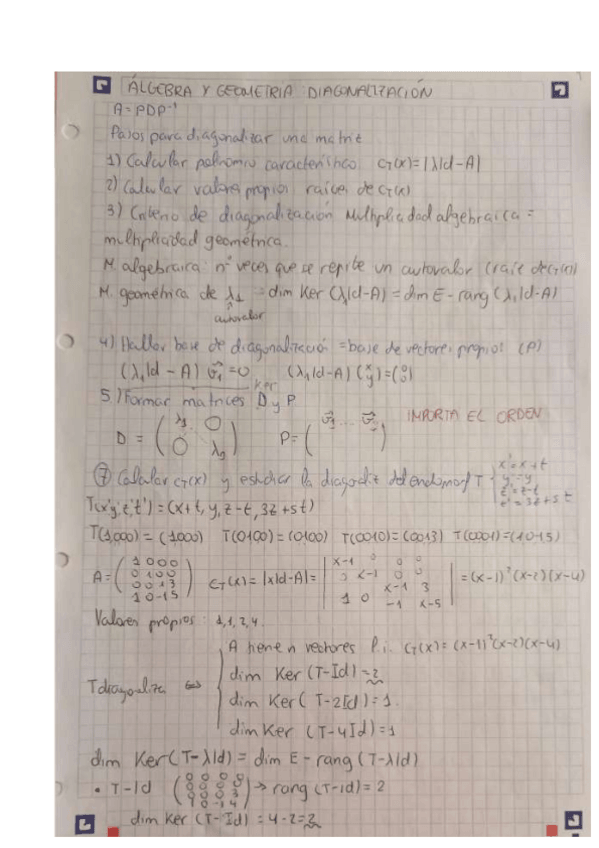 ÁLGEBRA Y GEOMETRIA: DIAGONALIZACIÓN
A = PDP⁻¹
Pasos para diagonalizar una matriz
1) Calcular polinomio característico C_T(x) = |λId-A|
2) Calcular valores propios raíces de C_T(x)
3) Criterio de diagonalización Multiplicidad algebraica =
multiplicidad geométrica.
M. algebraica: nº veces que se repite un autovalor (raíz de C_T(x))
M. geométrica de λ₁ = dim Ker (λId-A) = dim E - rang (λ₁Id-A)
autovalor
4) Hallar base de diagonalización = base de vectores propios (P)
(λ₁Id - A) v₁ = 0 (λ₁Id-A) (x y) = (0 0)
Ker
5) Formar matrices D y P
D = (λ₁ 0 0 λ₂) P = (v₁ ... v₂) IMPORTA EL ORDEN
⑦ Calcular C_T(x) y estudiar la diagonaliz del endomorf T { x' = x+t
y' = y
z' = z-t
t' = 3z+5t
T(x',y',z',t') = (x+t, y, z-t, 3z+5t)
T(1,000) = (1,000) T(0100) = (0100) T(0010) = (0013) T(0001) = (10-15)
A = (1 0 0 0
0 1 0 0
0 0 1 3
1 0 -1 5) C_T(x) = |xId-A| = | x-1 0 0 0
0 x-1 0 0
x-1 3
1 0 -1 x-5 | = (x-1)²(x-2)(x-4)
Valores propios: 1,1,2,4.
T diagonaliza ⇔ { A tiene n vectores l.i. C_T(x) = (x-1)²(x-2)(x-4)
dim Ker (T-Id) = 2
dim Ker (T-2Id) = 1.
dim Ker (T-4Id) = 1
dim Ker (T-λId) = dim E - rang (T-λId)
• T-Id (0 0 0 0
0 0 0 0
0 0 0 3
1 0 -1 4) → rang (T-Id) = 2
dim Ker (T-Id) = 4-2 = 2